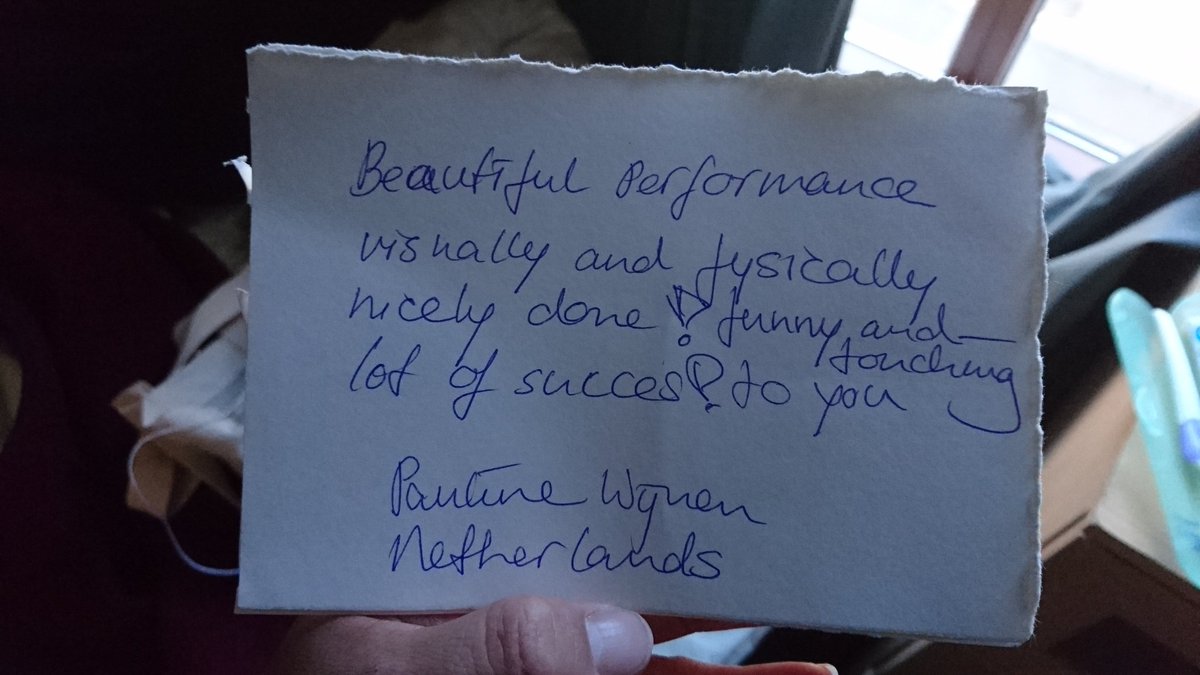 Beautiful performance
visually and fysically
nicely done! funny and
touching
lot of succes! to you
Pauline Wijnen
Netherlands